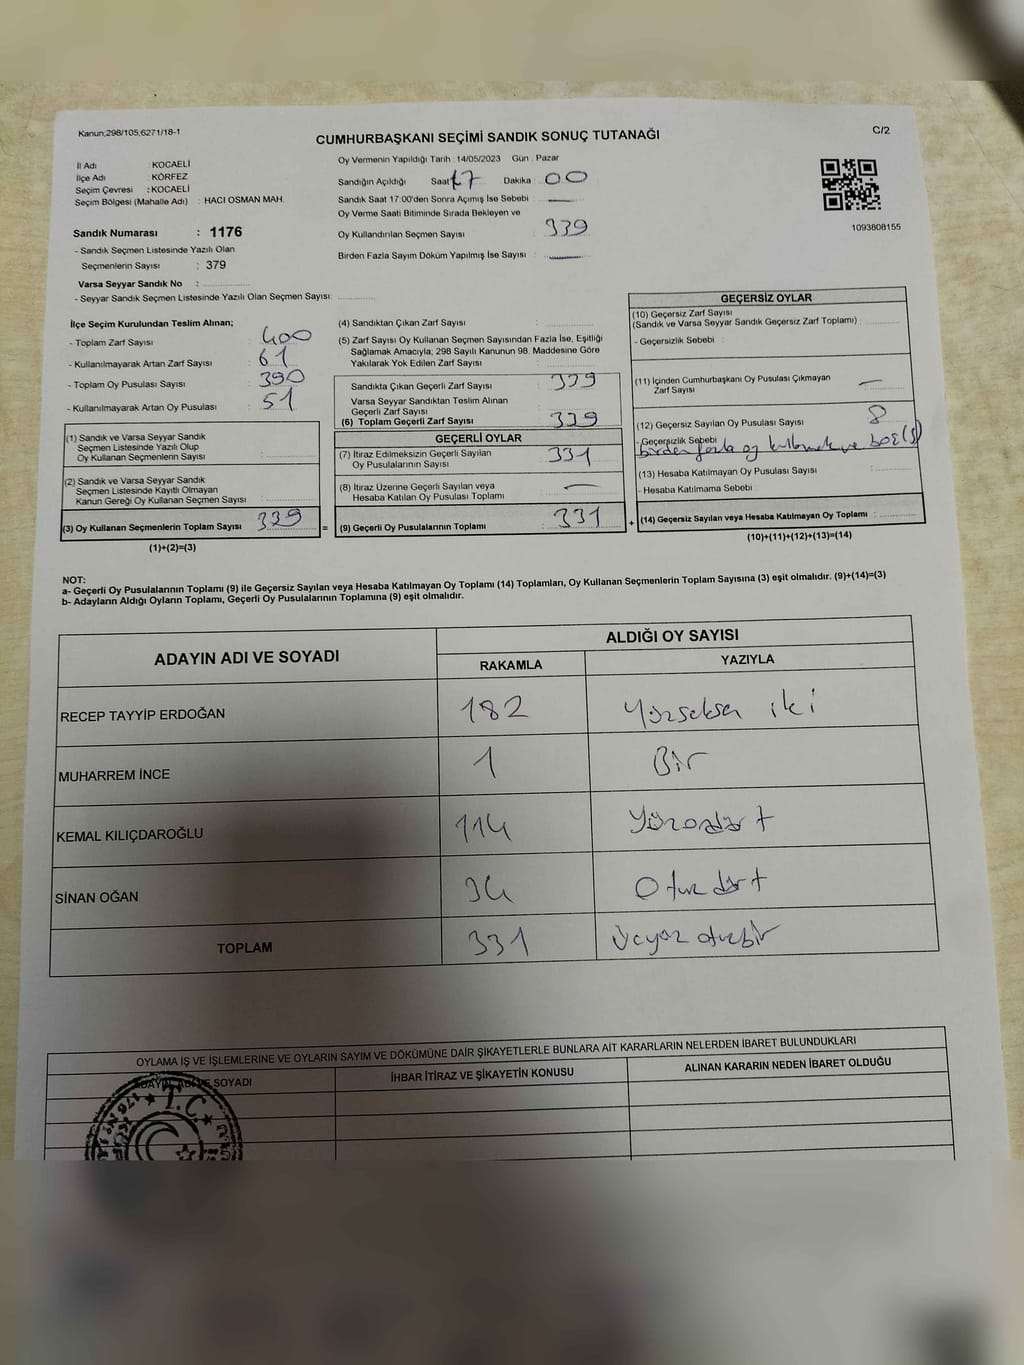 Kanun;298/105;6271/18-1
CUMHURBAŞKANI SEÇİMİ SANDIK SONUÇ TUTANAĞI
C/2
İl Adı : KOCAELİ
İlçe Adı : KÖRFEZ
Seçim Çevresi : KOCAELİ
Seçim Bölgesi (Mahalle Adı) : HACI OSMAN MAH.
Sandık Numarası : 1176
- Sandık Seçmen Listesinde Yazılı Olan
Seçmenlerin Sayısı : 379
Varsa Seyyar Sandık No :
- Seyyar Sandık Seçmen Listesinde Yazılı Olan Seçmen Sayısı:
Oy Vermenin Yapıldığı Tarih : 14/05/2023 Gün : Pazar
Sandığın Açıldığı Saat 17 Dakika : 00
Sandık Saat 17.00'den Sonra Açımış İse Sebebi : —
Oy Verme Saati Bitiminde Sırada Bekleyen ve
Oy Kullandırılan Seçmen Sayısı : 339
Birden Fazla Sayım Döküm Yapılmış İse Sayısı : —
1093808155
İlçe Seçim Kurulundan Teslim Alınan;
- Toplam Zarf Sayısı : 400
- Kullanılmayarak Artan Zarf Sayısı : 61
- Toplam Oy Pusulası Sayısı : 390
- Kullanılmayarak Artan Oy Pusulası : 51
(1) Sandık ve Varsa Seyyar Sandık
Seçmen Listesinde Yazılı Olup
Oy Kullanan Seçmenlerin Sayısı :
(2) Sandık ve Varsa Seyyar Sandık
Seçmen Listesinde Kayıtlı Olmayan
Kanun Gereği Oy Kullanan Seçmen Sayısı :
(3) Oy Kullanan Seçmenlerin Toplam Sayısı : 339 =
(1)+(2)=(3)
(4) Sandıktan Çıkan Zarf Sayısı :
(5) Zarf Sayısı Oy Kullanan Seçmen Sayısından Fazla İse, Eşitliği
Sağlamak Amacıyla; 298 Sayılı Kanunun 98. Maddesine Göre
Yakılarak Yok Edilen Zarf Sayısı :
Sandıkta Çıkan Geçerli Zarf Sayısı : 339
Varsa Seyyar Sandıktan Teslim Alınan
Geçerli Zarf Sayısı :
(6) Toplam Geçerli Zarf Sayısı : 339
GEÇERLİ OYLAR
(7) İtiraz Edilmeksizin Geçerli Sayılan
Oy Pusulalarının Sayısı : 331
(8) İtiraz Üzerine Geçerli Sayılan veya
Hesaba Katılan Oy Pusulası Toplamı : —
(9) Geçerli Oy Pusulalarının Toplamı : 331 +
GEÇERSİZ OYLAR
(10) Geçersiz Zarf Sayısı
(Sandık ve Varsa Seyyar Sandık Geçersiz Zarf Toplamı) :
- Geçersizlik Sebebi :
(11) İçinden Cumhurbaşkanı Oy Pusulası Çıkmayan
Zarf Sayısı : —
(12) Geçersiz Sayılan Oy Pusulası Sayısı : 8
- Geçersizlik Sebebi
birden fazla oy kullanmak ve boş
(13) Hesaba Katılmayan Oy Pusulası Sayısı :
- Hesaba Katılmama Sebebi
(14) Geçersiz Sayılan veya Hesaba Katılmayan Oy Toplamı :
(10)+(11)+(12)+(13)=(14)
NOT:
a- Geçerli Oy Pusulalarının Toplamı (9) ile Geçersiz Sayılan veya Hesaba Katılmayan Oy Toplamı (14) Toplamları, Oy Kullanan Seçmenlerin Toplam Sayısına (3) eşit olmalıdır. (9)+(14)=(3)
b- Adayların Aldığı Oyların Toplamı, Geçerli Oy Pusulalarının Toplamına (9) eşit olmalıdır.
ADAYIN ADI VE SOYADI
ALDIĞI OY SAYISI
RAKAMLA YAZIYLA
RECEP TAYYİP ERDOĞAN 182 Yüzseksen iki
MUHARREM İNCE 1 Bir
KEMAL KILIÇDAROĞLU 114 Yüzondört
SİNAN OĞAN 34 Otuz dört
TOPLAM 331 Üçyüz otuzbir
OYLAMA İŞ VE İŞLEMLERİNE VE OYLARIN SAYIM VE DÖKÜMÜNE DAİR ŞİKAYETLERLE BUNLARA AİT KARARLARIN NELERDEN İBARET BULUNDUKLARI
ADAYIN ADI VE SOYADI İHBAR İTİRAZ VE ŞİKAYETİN KONUSU ALINAN KARARIN NEDEN İBARET OLDUĞU
T.C.